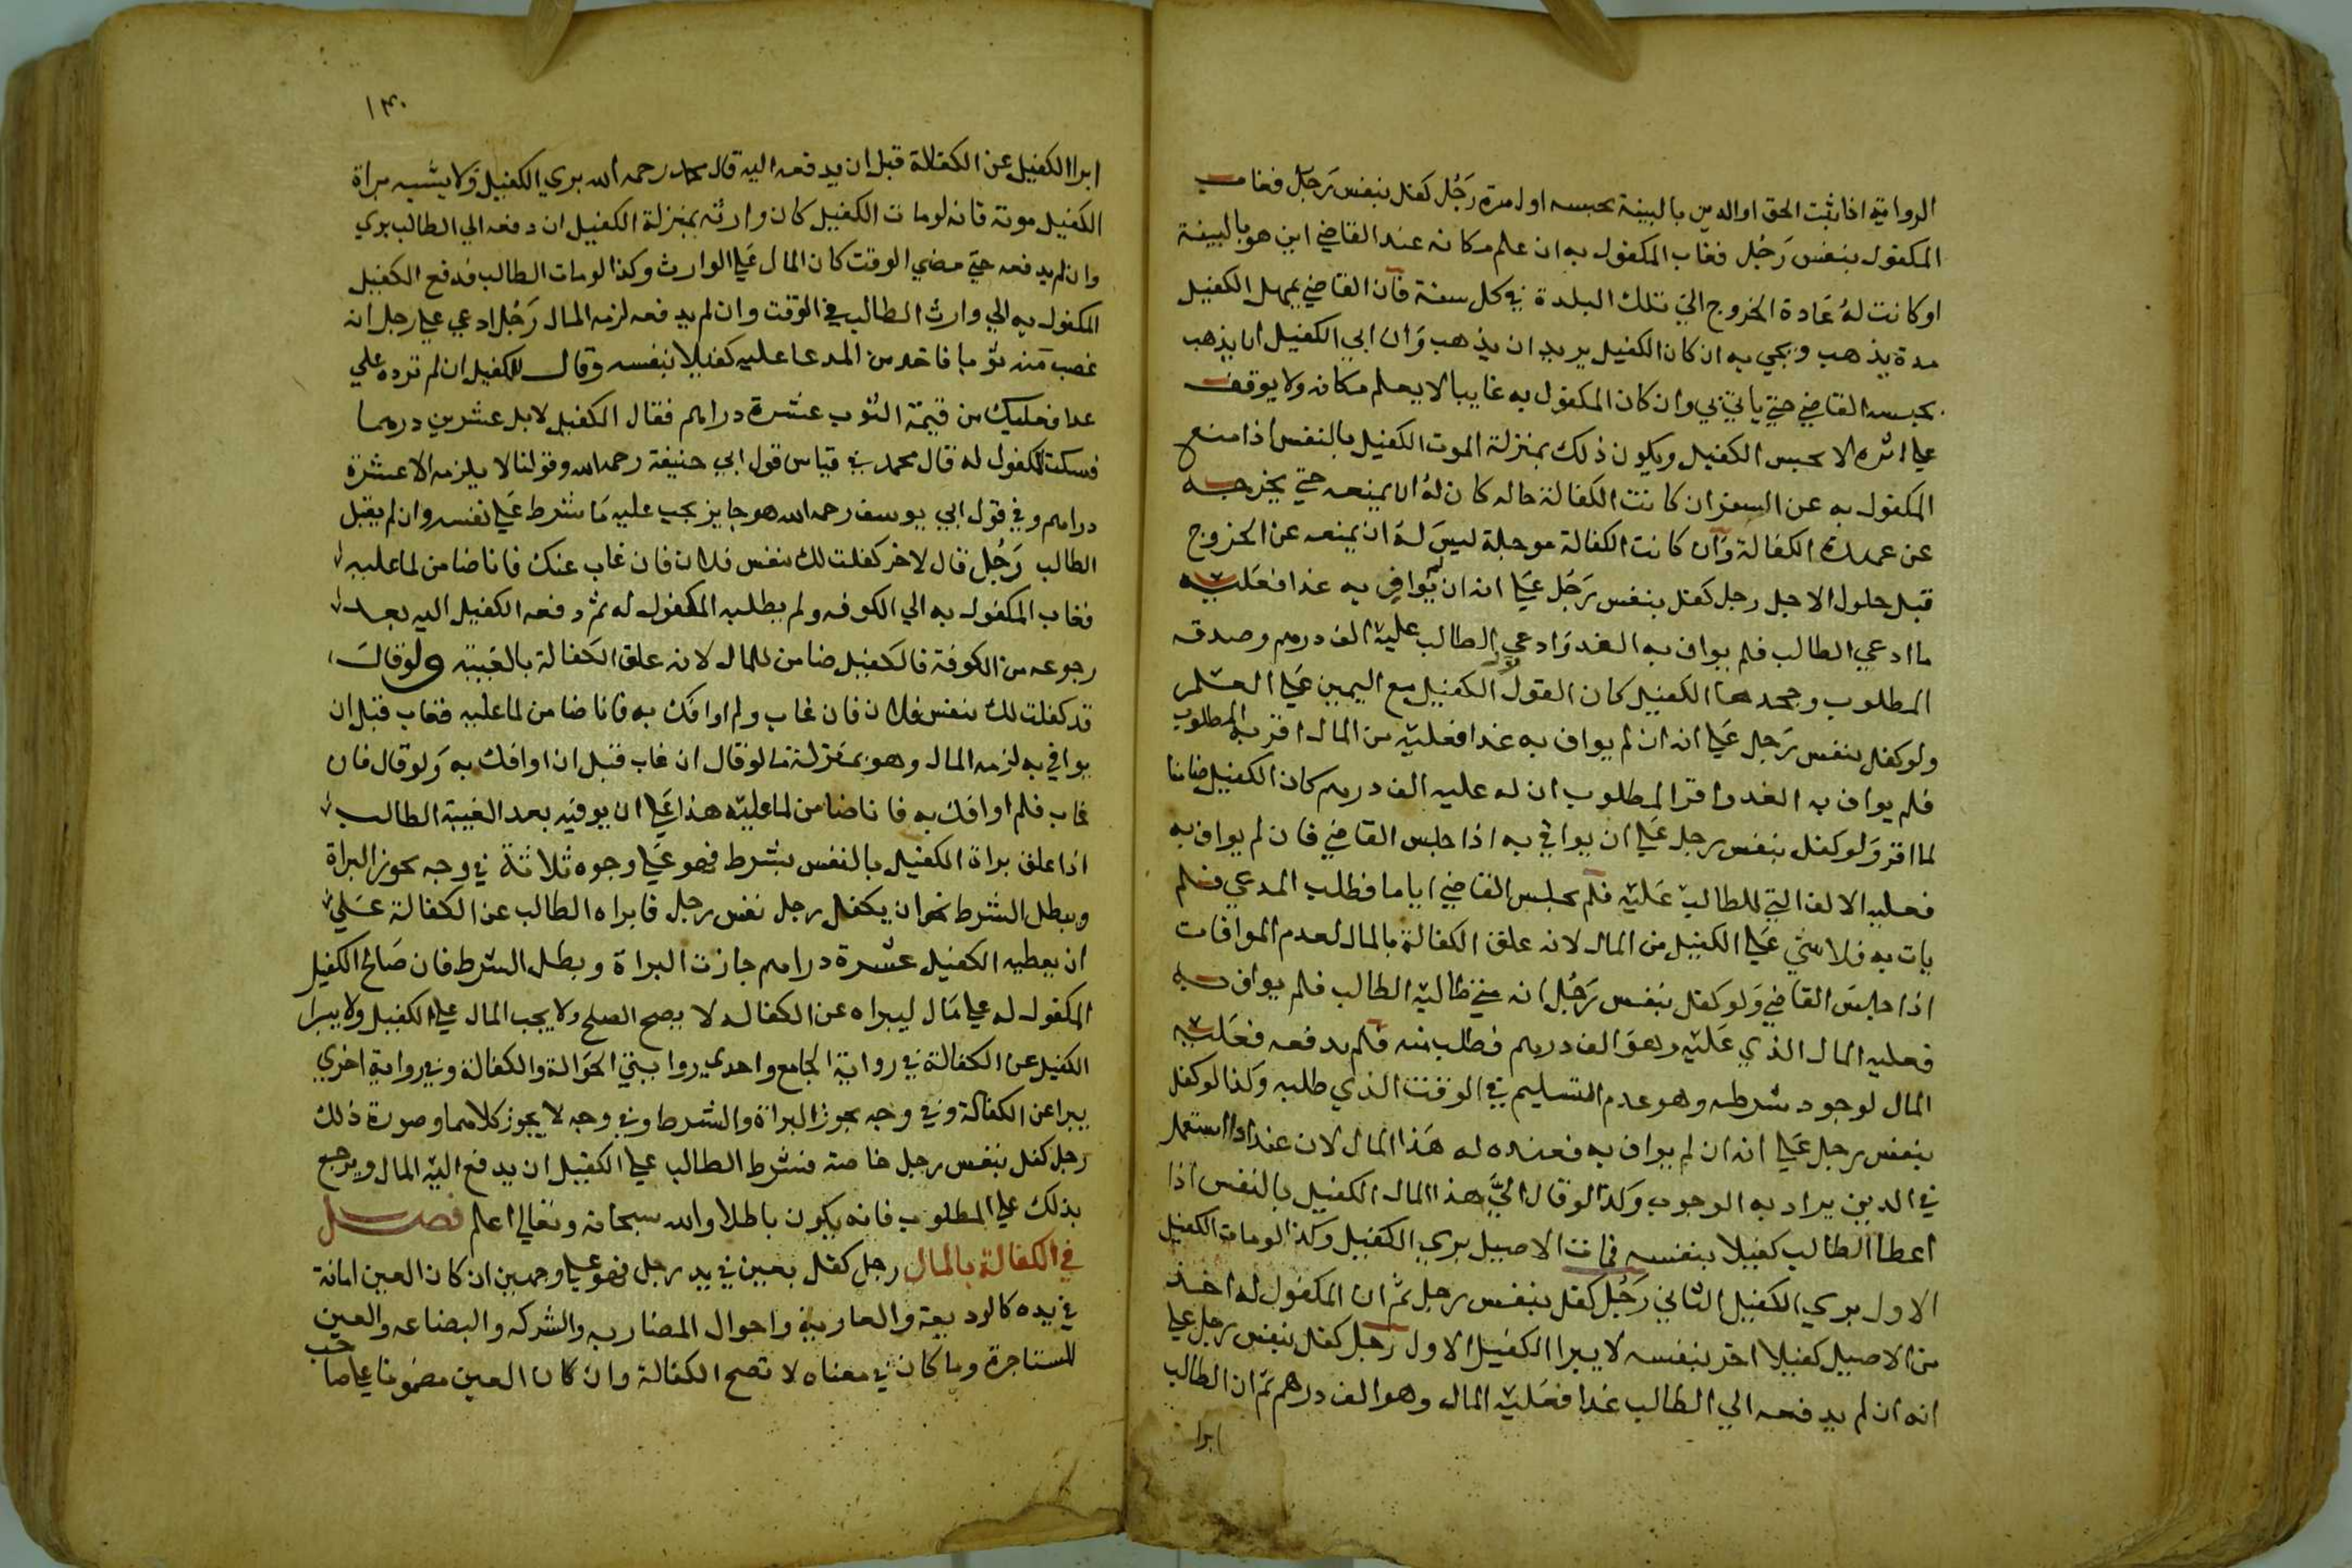 الرواية اذا ثبت الحق اوالدين بالبينة يحبسه اول مرة رجل كفل بنفس رجل فغاب
المكفول بنفس رجل فغاب المكفول به ان علم مكانه عند القاضي اين هو بالبينة
او كانت له عادة الخروج الي تلك البلدة في كل سنة فان القاضي يمهل الكفيل
مدة يذهب ويجي به ان كان الكفيل يريد ان يذهب وان ابي الكفيل ان يذهب
يحبسه القاضي حتي ياتي به وان كان المكفول به غايبا لا يعلم مكانه ولا يوقف
علي اثره لا يحبس الكفيل ويكون ذلك بمنزلة الموت الكفيل بالنفس اذا منع
المكفول به عن السفر ان كانت الكفالة حاله كان له ان يمنعه حتي يخرجه
عن عهدة الكفالة وان كانت الكفالة موجلة ليس له ان يمنعه عن الخروج
قبل حلول الاجل رجل كفل بنفس رجل علي انه ان لم يوافي به غدا فعليه
ما ادعي الطالب فلم يواف به الغد وادعي الطالب عليه الف درهم وصدقه
المطلوب وجحدها الكفيل كان القول قول الكفيل مع اليمين علي العلم
ولو كفل بنفس رجل علي انه ان لم يواف به غدا فعليه من المال ما اقر به المطلوب
فلم يواف به الغد واقر المطلوب ان له عليه الف درهم كان الكفيل ضامنا
لما اقر ولو كفل بنفس رجل علي ان يوافي به اذا جلس القاضي فان لم يواف به
فعليه الالف التي للطالب عليه فلم يجلس القاضي اياما فطلب المدعي فلم
يات به فلا شي علي الكفيل من المال لانه علق الكفالة بالمال لعدم الموافات
اذا جلس القاضي ولو كفل بنفس رجل انه متي طالبه الطالب فلم يواف به
فعليه المال الذي عليه وهو الف درهم فطلب منه فلم يدفعه فعليه
المال لوجود شرطه وهو عدم التسليم في الوقت الذي طلبه وكذا لو كفل
بنفس رجل علي انه ان لم يواف به فعنده له هذا المال لان عند اذا استعمل
في الدين يراد به الوجوب وكذا لو قال الي هذا المال الكفيل بالنفس اذا
اعطا الطالب كفيلا بنفسه فمات الاصيل بري الكفيل وكذا لو مات الكفيل
الاول بري الكفيل الثاني رجل كفل بنفس رجل ثم ان المكفول له اخذ
من الاصيل كفيلا اخر بنفسه لا يبرا الكفيل الاول رجل كفل بنفس رجل علي
انه ان لم يدفعه الي الطالب غدا فعليه المال وهو الف درهم ثم ان الطالب
ابرا
١٣٠
ابرا الكفيل عن الكفالة قبل ان يدفعه اليه قال محمد رحمه الله بري الكفيل ولا يشبه براة
الكفيل موته فانه لو مات الكفيل كان وارثه بمنزلة الكفيل ان دفعه الي الطالب بري
وان لم يدفعه حتي مضي الوقت كان المال علي الوارث وكذا لو مات الطالب فدفع الكفيل
المكفول به الي وارث الطالب في الوقت وان لم يدفعه لزمه المال رجل ادعي علي رجل انه
غصب منه ثوبا فاخذ من المدعا عليه كفيلا بنفسه وقال للكفيل ان لم ترده علي
غدا فعليك من قيمة الثوب عشرة دراهم فقال الكفيل لا بل عشرين درهما
فسكت المكفول له قال محمد في قياس قول ابي حنيفة رحمه الله وقولنا لا يلزمه الا عشرة
دراهم وفي قول ابي يوسف رحمه الله هو جايز يجب عليه ما شرط علي نفسه وان لم يقبل
الطالب رجل قال لاخر كفلت لك بنفس فلان فان غاب عنك فانا ضامن لما عليه
فغاب المكفول به الي الكوفه ولم يطلبه المكفول له ثم دفعه الكفيل اليه بعد
رجوعه من الكوفة فالكفيل ضامن للمال لانه علق الكفالة بالغيبة ولو قال
قد كفلت لك بنفس فلان فان غاب ولم اوافك به فانا ضامن لما عليه فغاب قبل ان
يوافي به لزمه المال وهو بمنزلة ما لو قال ان غاب قبل ان اوافك به ولو قال فان
غاب فلم اوافك به فانا ضامن لما عليه هذا علي ان يوفيه بعد الغيبة الطالب
اذا علق براة الكفيل بالنفس بشرط فهو علي وجوه ثلاثة في وجه تجوز البراة
ويبطل الشرط نحو ان يكفل رجل بنفس رجل فابراه الطالب عن الكفالة علي
ان يعطيه الكفيل عشرة دراهم جازت البراة وبطل الشرط فان صالح الكفيل
المكفول له علي مال ليبراه عن الكفاله لا يصح الصلح ولا يجب المال علي الكفيل ولا يبرا
الكفيل عن الكفالة في رواية الجامع واحدي روايتي الحوالة والكفالة وفي رواية اخري
يبرا عن الكفالة وفي وجه تجوز البراة والشرط وفي وجه لا يجوز كلاهما وصورة ذلك
رجل كفل بنفس رجل خاصة فشرط الطالب علي الكفيل ان يدفع اليه المال ويرجع
بذلك علي المطلوب فانه يكون باطلا والله سبحانه وتعالي اعلم فصل
في الكفالة بالمال رجل كفل بعين في يد رجل فهو علي وجهين ان كان العين امانة
في يده كالوديعة والعارية واحوال المضاربه والشركه والبضاعه والعين
المستاجرة وما كان في معناه لا تصح الكفالة وان كان العين مضمونا علي صاحب